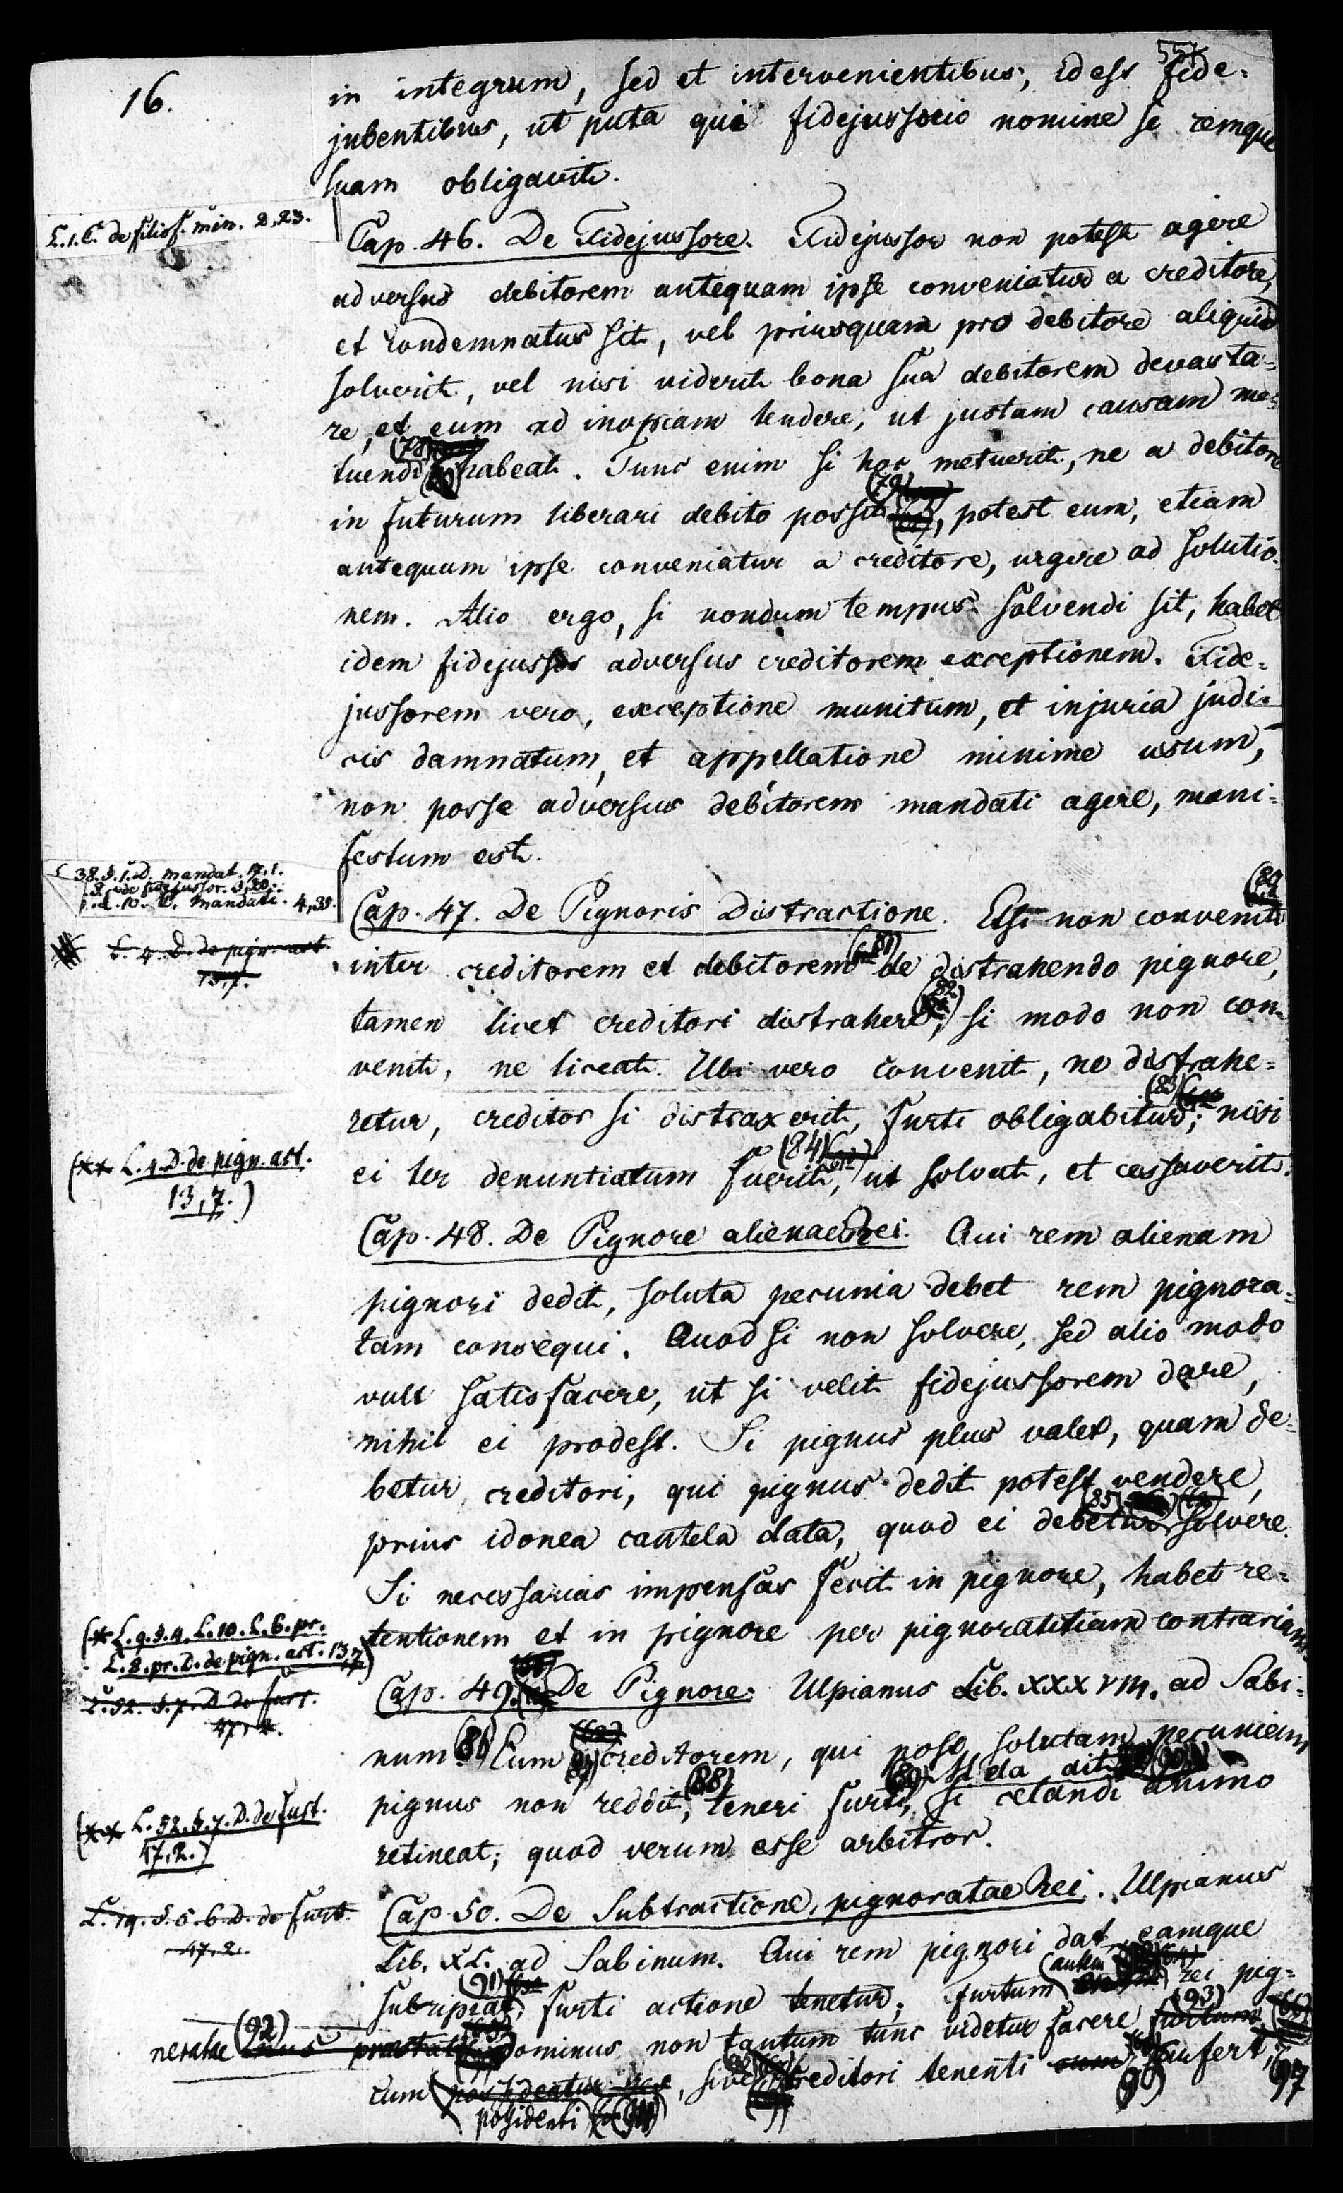 16.
in integrum, sed et intervenientibus, id est fide-
jubentibus, ut puta qui fidejussorio nomine se remque
suam obligavit.
L.1.C. de filiof. min. 2,23.
Cap. 46. De Fidejussore. Fidejussor non potest agere
adversus debitorem antequam ipse conveniatur a creditore,
et condemnatus sit, vel priusquam pro debitore aliquid
solverit, vel nisi viderit bona sua debitorem devasta-
re, et eum ad inopiam tendere, ut justam causam me-
tuendi (78) habeat. Tunc enim si hoc metuerit, ne a debitore
in futurum liberari debito possit (79), potest eum, etiam
antequam ipse conveniatur a creditore, urgere ad solutio-
nem. Alio ergo, si nondum tempus solvendi sit, habet
idem fidejussor adversus creditorem exceptionem. Fide-
jussorem vero, exceptione munitum, et injuria judi-
cis damnatum, et appellatione minime usum,
non posse adversus debitorem mandati agere, mani-
festum est.
38.§.1.D. mandat. 17,1.
L.10.C. mandati. 4,35.
Cap. 47. De Pignoris Distractione. Etsi non convenit
L. 4. D. de pign. act.
13,7.
inter creditorem et debitorem (81) de distrahendo pignore,
tamen licet creditori distrahere (82), si modo non con-
venit, ne liceat. Ubi vero convenit, ne distrahe-
retur, creditor si distraxerit, furti obligabitur (83); nisi
(** L.4.D. de pign. act.
13,7.)
ei ter denuntiatum fuerit (84), ut solvat, et cessaverit.
Cap. 48. De Pignore alienae Rei. Qui rem alienam
pignori dedit, soluta pecunia debet rem pignora-
tam consequi. Quod si non solvere, sed alio modo
vult satisfacere, ut si velit fidejussorem dare,
nihil ei prodest. Si pignus plus valet, quam de-
betur creditori, qui pignus dedit potest vendere,
prius idonea cautela data, quod ei debetur (85) solvere.
Si necessarias impensas fecit in pignore, habet re-
(* L.9.§.4. L.10. L.6.pr.
L.8.pr.D. de pign. act. 13,7)
tentionem et in pignore per pignoratitiam contrariam.
L.52.§.7.D. de furt.
47,2.
Cap. 49. De Pignore. Ulpianus Lib. XXXVIII. ad Sabi-
num (86) Eum creditorem, qui post solutam pecuniam
pignus non reddit, (88) teneri furti (89) Mela ait si celandi animo
(** L.52.§.7.D. de furt.
47,2.)
retineat; quod verum esse arbitror.
L.19.§.5.6.D. de furt.
47,2.
Cap. 50. De Subtractione pignoratae Rei. Ulpianus
Lib. XL. ad Sabinum. Qui rem pignori dat, eamque
subripiat (91), furti actione tenetur. Furtum autem rei pig-
neratae (92) dominus non tantum tunc videtur facere (93)
cum possidenti, sive creditori tenenti aufert,
97